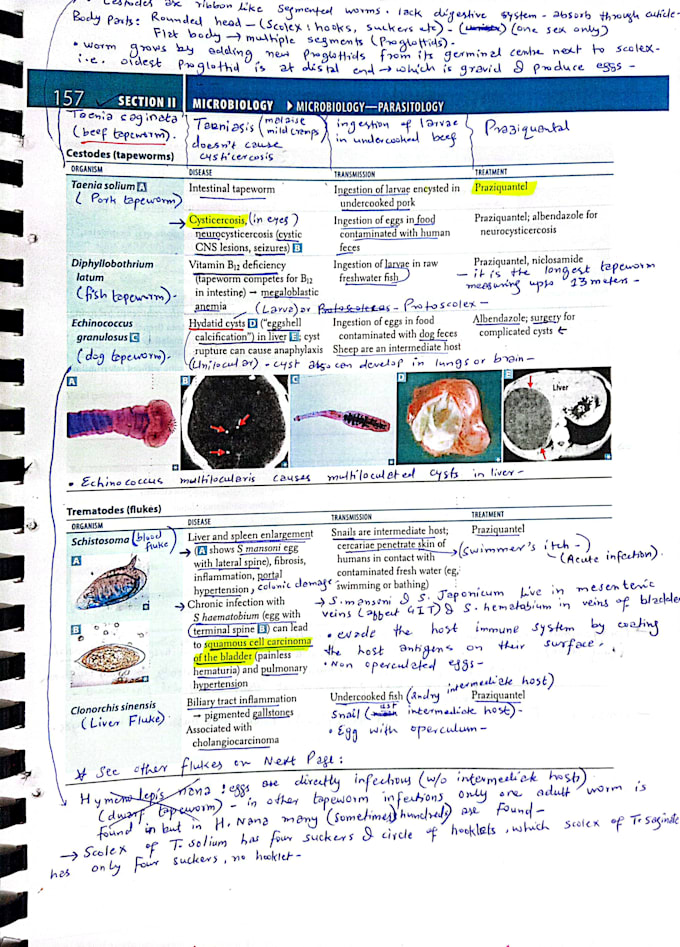 • Cestodes are ribbon like segmented worms. lack digestive system - absorb through cuticle-
Body Parts: Rounded head - (Scolex: hooks, suckers etc) - (one sex only)
Flat body → multiple segments (Proglottids).
• worm grows by adding new proglottids from its germinal centre next to scolex-
i.e. oldest proglottid is at distal end → which is gravid & produce eggs -
157 SECTION II MICROBIOLOGY ▶ MICROBIOLOGY—PARASITOLOGY
Taenia saginata (beef tapeworm).
Taeniasis (malaise mild cramps) doesn't cause cysticercosis
ingestion of larvae in undercooked beef
Praziquantal
Cestodes (tapeworms)
ORGANISM DISEASE TRANSMISSION TREATMENT
Taenia solium A Intestinal tapeworm Ingestion of larvae encysted in Praziquantel
(Pork tapeworm) undercooked pork
→ Cysticercosis, (in eyes) Ingestion of eggs in food Praziquantel; albendazole for
neurocysticercosis (cystic contaminated with human neurocysticercosis
CNS lesions, seizures) B feces
Diphyllobothrium Vitamin B12 deficiency Ingestion of larvae in raw Praziquantel, niclosamide
latum (tapeworm competes for B12 freshwater fish - it is the longest tapeworm
(fish tapeworm)- in intestine) → megaloblastic measuring upto 13 meters-
anemia (Larva) or Protoscolex-
Echinococcus Hydatid cysts D ("eggshell Ingestion of eggs in food Albendazole; surgery for
granulosus C calcification") in liver E; cyst contaminated with dog feces complicated cysts
(dog tapeworm). rupture can cause anaphylaxis Sheep are an intermediate host
(Unilocular) - cyst also can develop in lungs or brain-
A B C D E Liver
• Echinococcus multilocularis causes multiloculated cysts in liver-
Trematodes (flukes)
ORGANISM DISEASE TRANSMISSION TREATMENT
Schistosoma (blood fluke) Liver and spleen enlargement Snails are intermediate host; Praziquantel
A (A shows S mansoni egg cercariae penetrate skin of → (Swimmer's itch-)
with lateral spine), fibrosis, humans in contact with (Acute infection).
inflammation, portal contaminated fresh water (eg,
hypertension, colonic damage swimming or bathing)
→ Chronic infection with → S. mansoni & S. Japonicum live in mesenteric
S haematobium (egg with veins (affect GIT) & S. hematobium in veins of bladder
B terminal spine B) can lead • evade the host immune system by coating
to squamous cell carcinoma the host antigens on their surface.
of the bladder (painless • Non operculated eggs-
hematuria) and pulmonary
hypertension
Clonorchis sinensis Biliary tract inflammation Undercooked fish (2ndry intermediate host) Praziquantel
(Liver Fluke) → pigmented gallstones Snail (1st intermediate host)-
Associated with • Egg with operculum-
cholangiocarcinoma
* See other flukes on Next Page:
Hymenolepis nana: eggs are directly infectious (w/o intermediate host)
(dwarf tapeworm) - in other tapeworm infections only one adult worm is
found in but in H. Nana many (sometimes hundreds) are found-
→ Scolex of T. solium has four suckers & circle of hooklets, which scolex of T. saginata
has only four suckers, no hooklet-